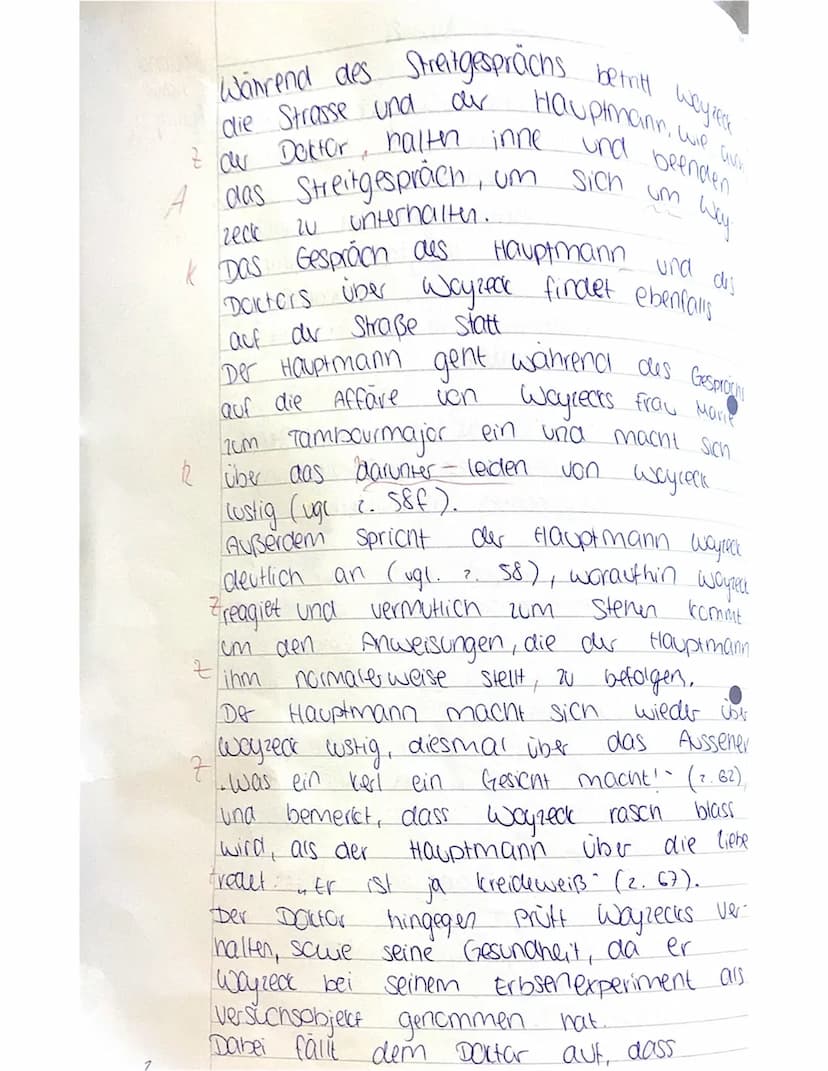 Während des Streitgesprächs betritt Woyzeck
die Strasse und der Hauptmann, wie auch
Z der Doktor, halten inne und beenden
A das Streitgespräch, um sich um Woy-
zeck zu unterhalten.
K Das Gespräch des Hauptmann und des
Doktors über Woyzeck findet ebenfalls
auf der Straße statt
Der Hauptmann geht während des Gesprächs
auf die Affäre von Woyzecks Frau Marie
zum Tambourmajor ein und macht sich
R über das darunter-leiden von Woyzeck
lustig (vgl. Z. 58f).
Außerdem spricht der Hauptmann Woyzeck
deutlich an (vgl. Z. 58), woraufhin Woyzeck
Z reagiert und vermutlich zum stehen kommt
um den Anweisungen, die der Hauptmann
Z ihm normalerweise stellt, zu befolgen.
Der Hauptmann macht sich wieder über
Woyzeck lustig, diesmal über das Aussehen
Z „Was ein Kerl ein Gesicht macht!" (Z. 62),
und bemerkt, dass Woyzeck rasch blass
wird, als der Hauptmann über die liebe
redet. „Er ist ja kreideweiß" (Z. 67).
Der Doktor hingegen prüft Woyzecks Ver-
halten, sowie seine Gesundheit, da er
Woyzeck bei seinem Erbsenexperiment als
versuchsobjekt genommen hat.
Dabei fällt dem Doktor auf, dass